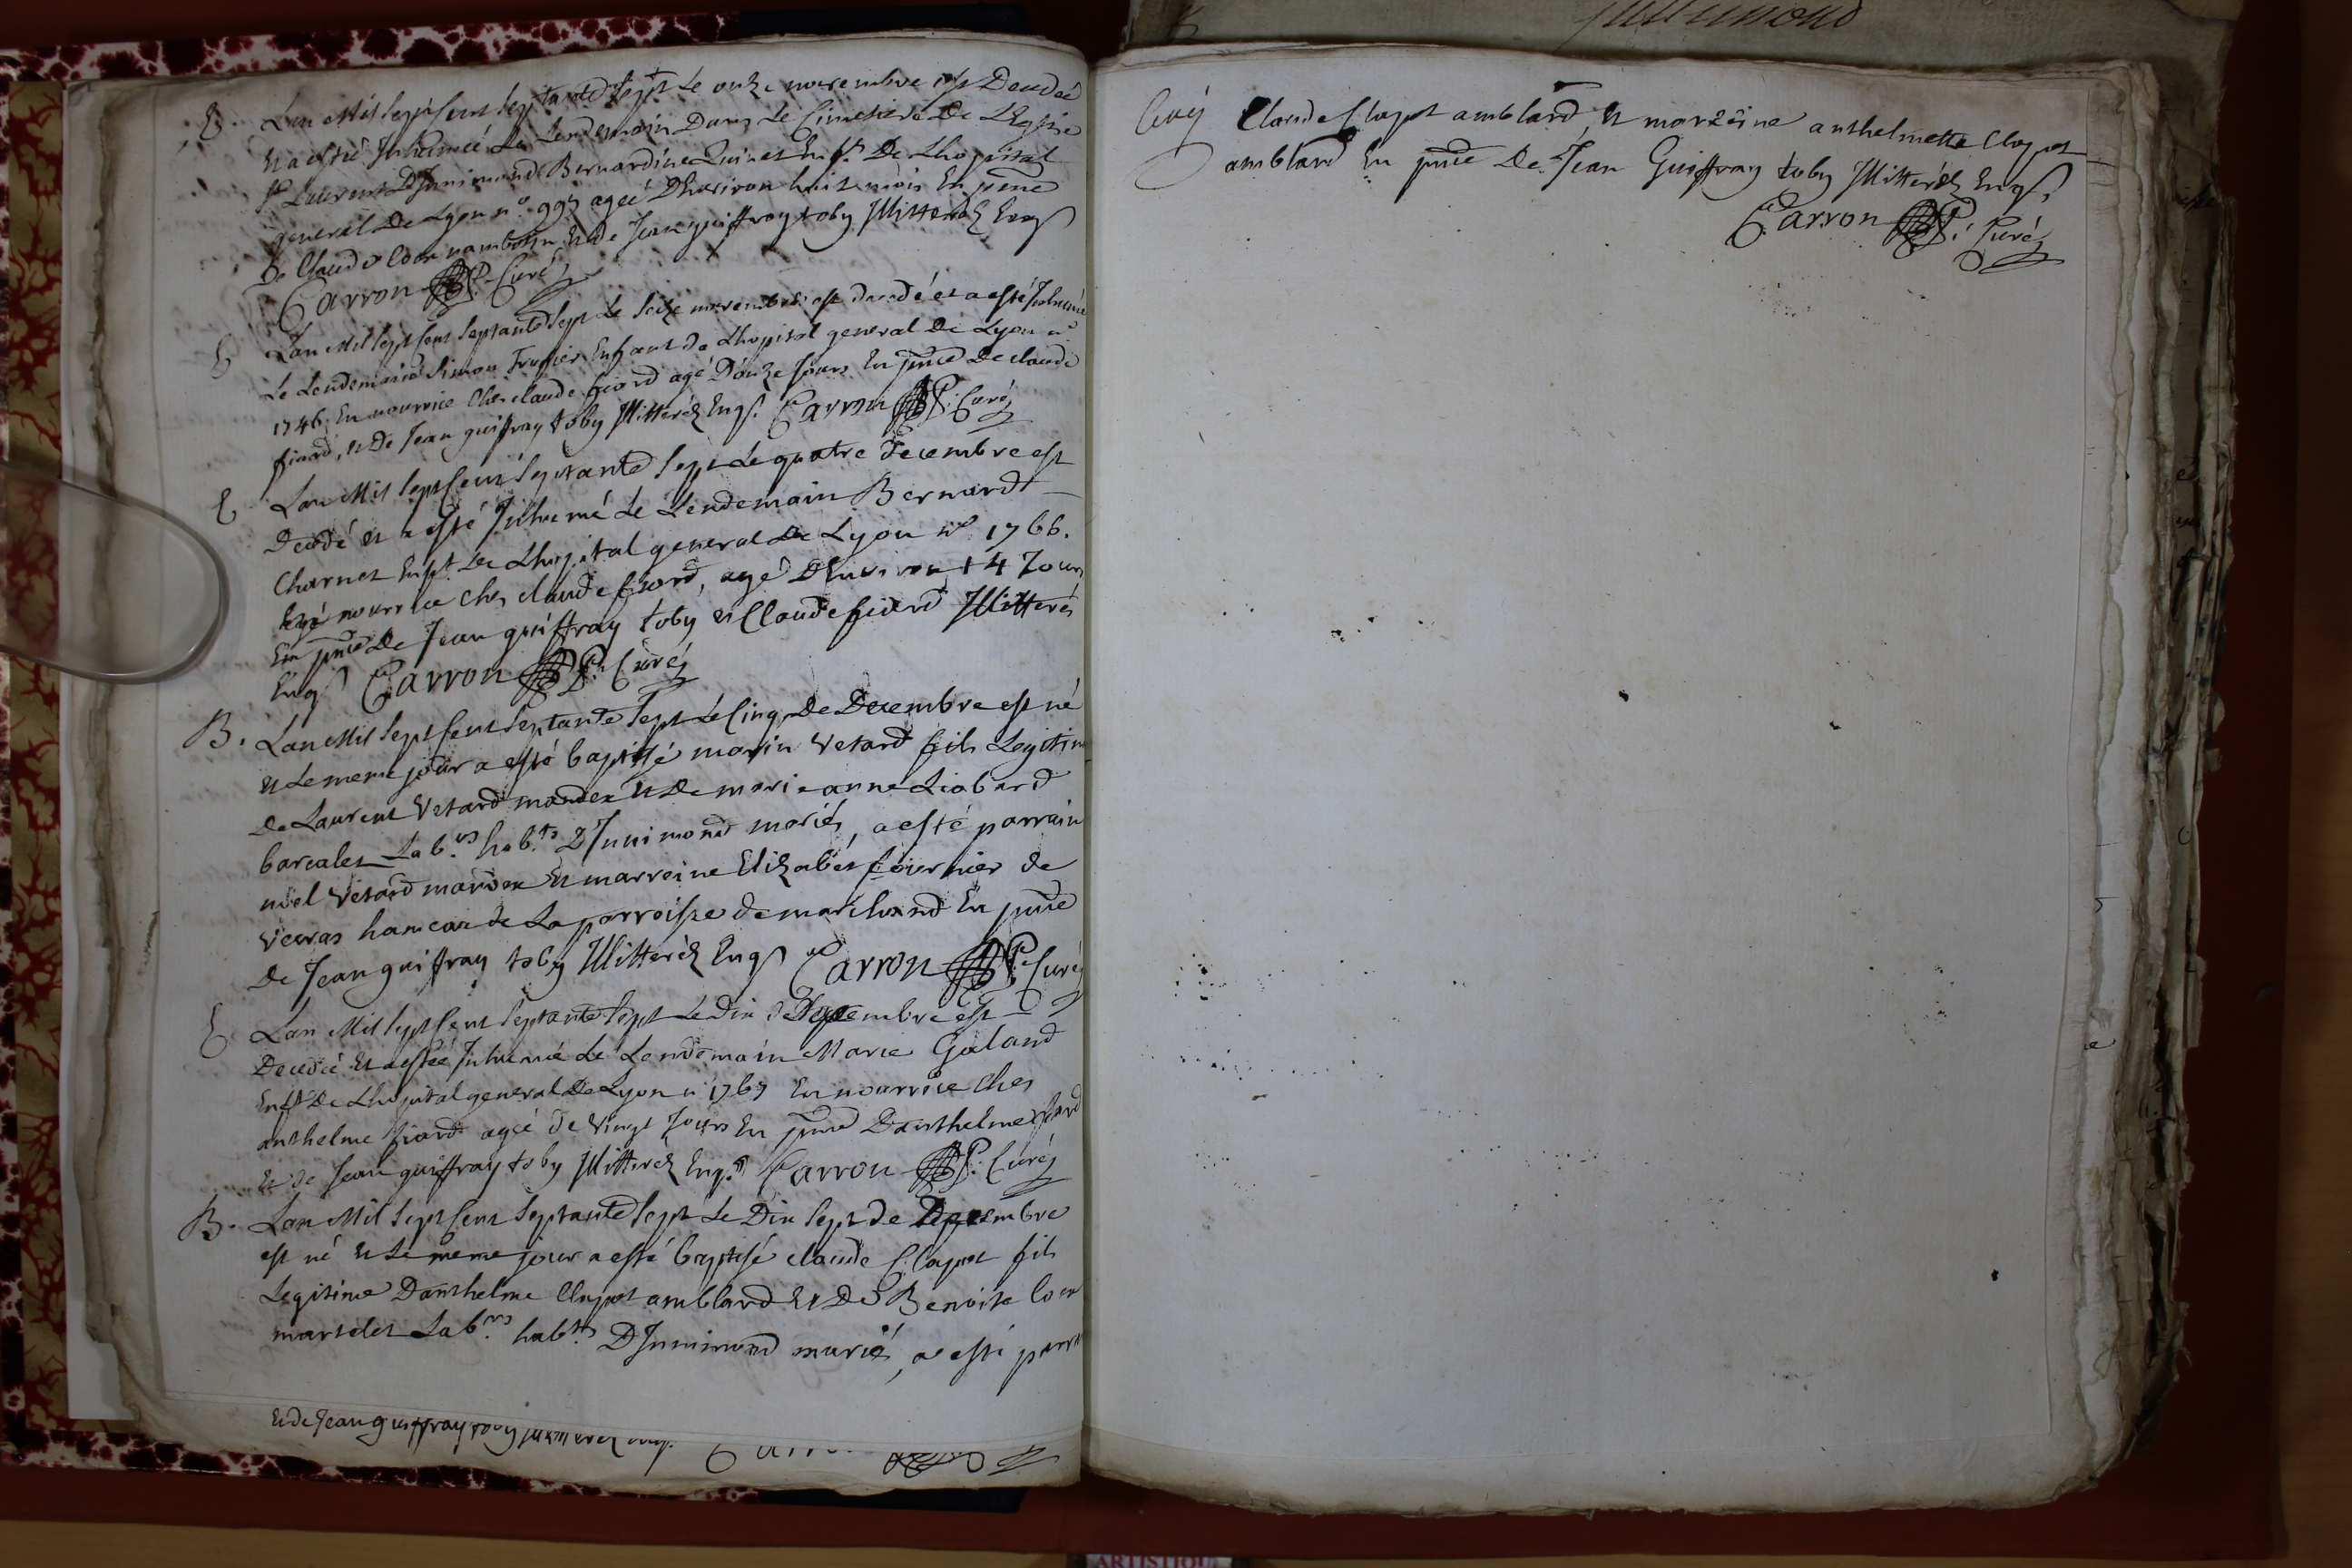 E. Lan Mil sept cent septante sept Le onze novembre est Decedeé
Et a esteé Inhumeé Le Lendemain Dans Le Cimetiere De LEglise
St Laurent DInnimond Bernardine Quinet Enft. De Lhopital
general De Lyon n.° 993 ageé Dhenviron huit mois En pnce
De Claude Et de Jean guiffray toby Illitteréz Enqs
Carron P. Curé
E Lan Mil sept cent septante sept Le seize novembre est decedé et a esté Inhumé
Le Lendemain Simon Enfant de Lhopital general De Lyon n.°
1746, En nourrice Ches claude fiard agé Douze Jours En pnce De claude
fiard, Et De Jean guiffray toby Illitteréz Enqs. Carron P. Curé
E Lan Mil sept cent septante sept Le quatre Decembre est
Decedé et a esté Inhumé Le Lendemain Bernardt
Charnet Enft. De Lhopital general De Lyon n.° 1766.
En nourrice Ches claude fiard, agé DEnviron 14 Jours
En pnce De Jean guiffray toby et Claude fiard Illitterés
Enqs Carron P. Curé
B. Lan Mil sept cent septante sept Le cinq De Decembre est né
Et Le meme jour a esté baptisé marin Vetard fils Legitim
De Laurent Vetard mandex Et De marie anne Liabard
barcalet Lab.rs hab.ts DInnimond mariés, a esté parrain
noel Vetard mandex Et marreine Elizabet fournier de
Veuras hameau de La parroisse de marchand En pnce
De Jean guiffray toby Illitteréz Enqs Carron P. Curé
E. Lan Mil sept cent septante sept Le Dix Decembre est
Decedeé Et a esteé Inhumeé Le Lendemain Marie Galand
Enft De Lhopital general De Lyon n° 1767 En nourrice Ches
anthelme fiard ageé de Vingt Jours En pnce Danthelme fiard
Et de Jean guiffray toby Illitteréz Enqs. Carron P. Curé
B. Lan Mil sept cent septante sept Le Dix sept de Decembre
est né Et Le meme jour a esté baptisé claude Clapot fils
Legitime Danthelme Clapot amblard Et De Benoite
martelet Lab.rs hab.ts DInnimond mariés, a esté parra
Et de Jean guiffray toby
Claude Clapot amblard, Et marreine anthelmette Clapot
amblard En pnce De Jean Guiffray toby Illitteréz Enqs,
Carron P. Curé
ARTISTIQUE